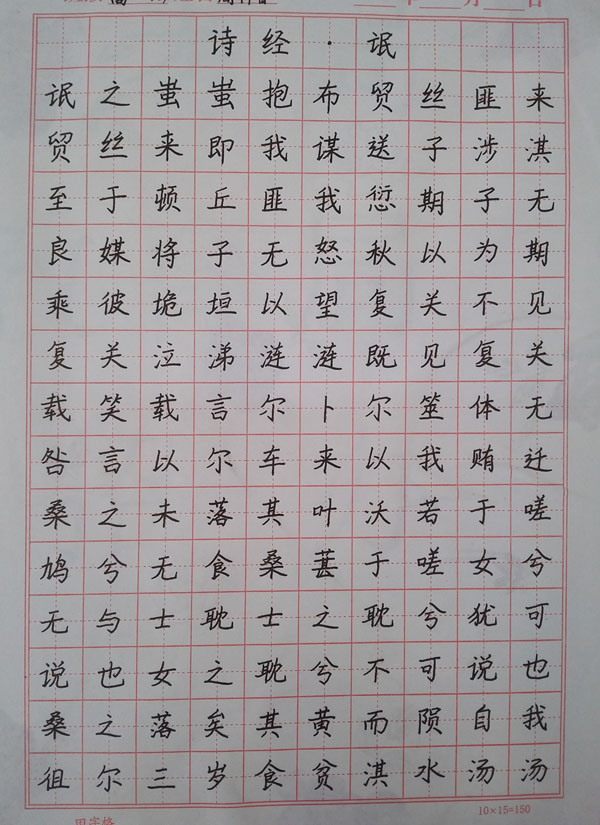 月 日
诗经·氓
氓之蚩蚩抱布贸丝匪来
贸丝来即我谋送子涉淇
至于顿丘匪我愆期子无
良媒将子无怒秋以为期
乘彼垝垣以望复关不见
复关泣涕涟涟既见复关
载笑载言尔卜尔筮体无
咎言以尔车来以我贿迁
桑之未落其叶沃若于嗟
鸠兮无食桑葚于嗟女兮
无与士耽士之耽兮犹可
说也女之耽兮不可说也
桑之落矣其黄而陨自我
徂尔三岁食贫淇水汤汤
10×15=150